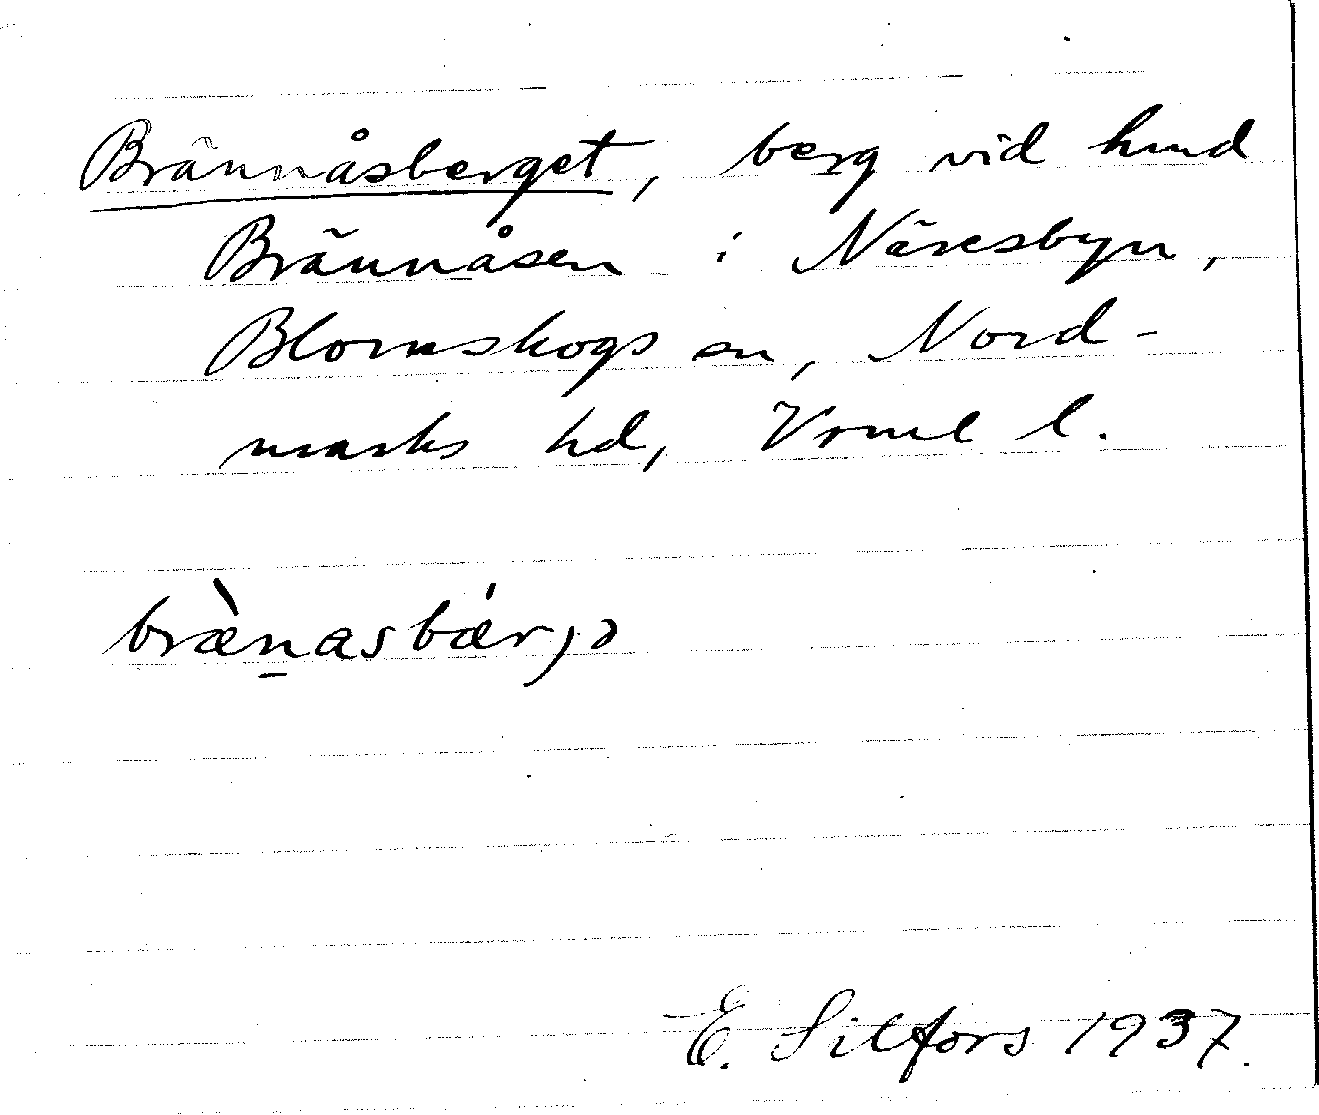 Brännåsberget, berg vid hmd
Brännåsen i Näresbyn,
Blomskogs sn, Nord-
marks hd, Vrml l.
bræ̀n̠asbǽrjə
E. Silfors 1937.